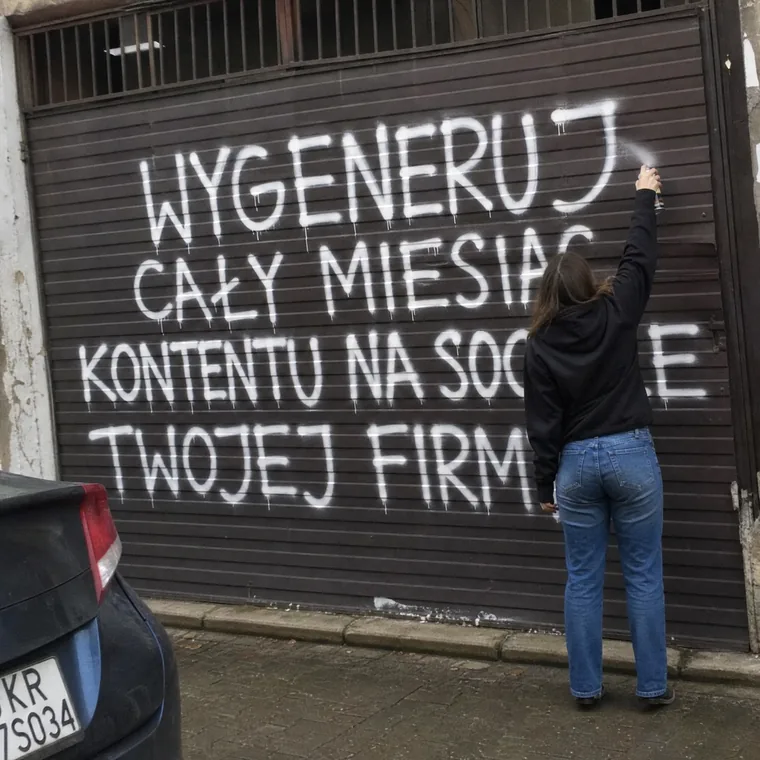 WYGENERUJ
CAŁY MIESIĄC
KONTENTU NA
TWOJEJ
KR
7S034